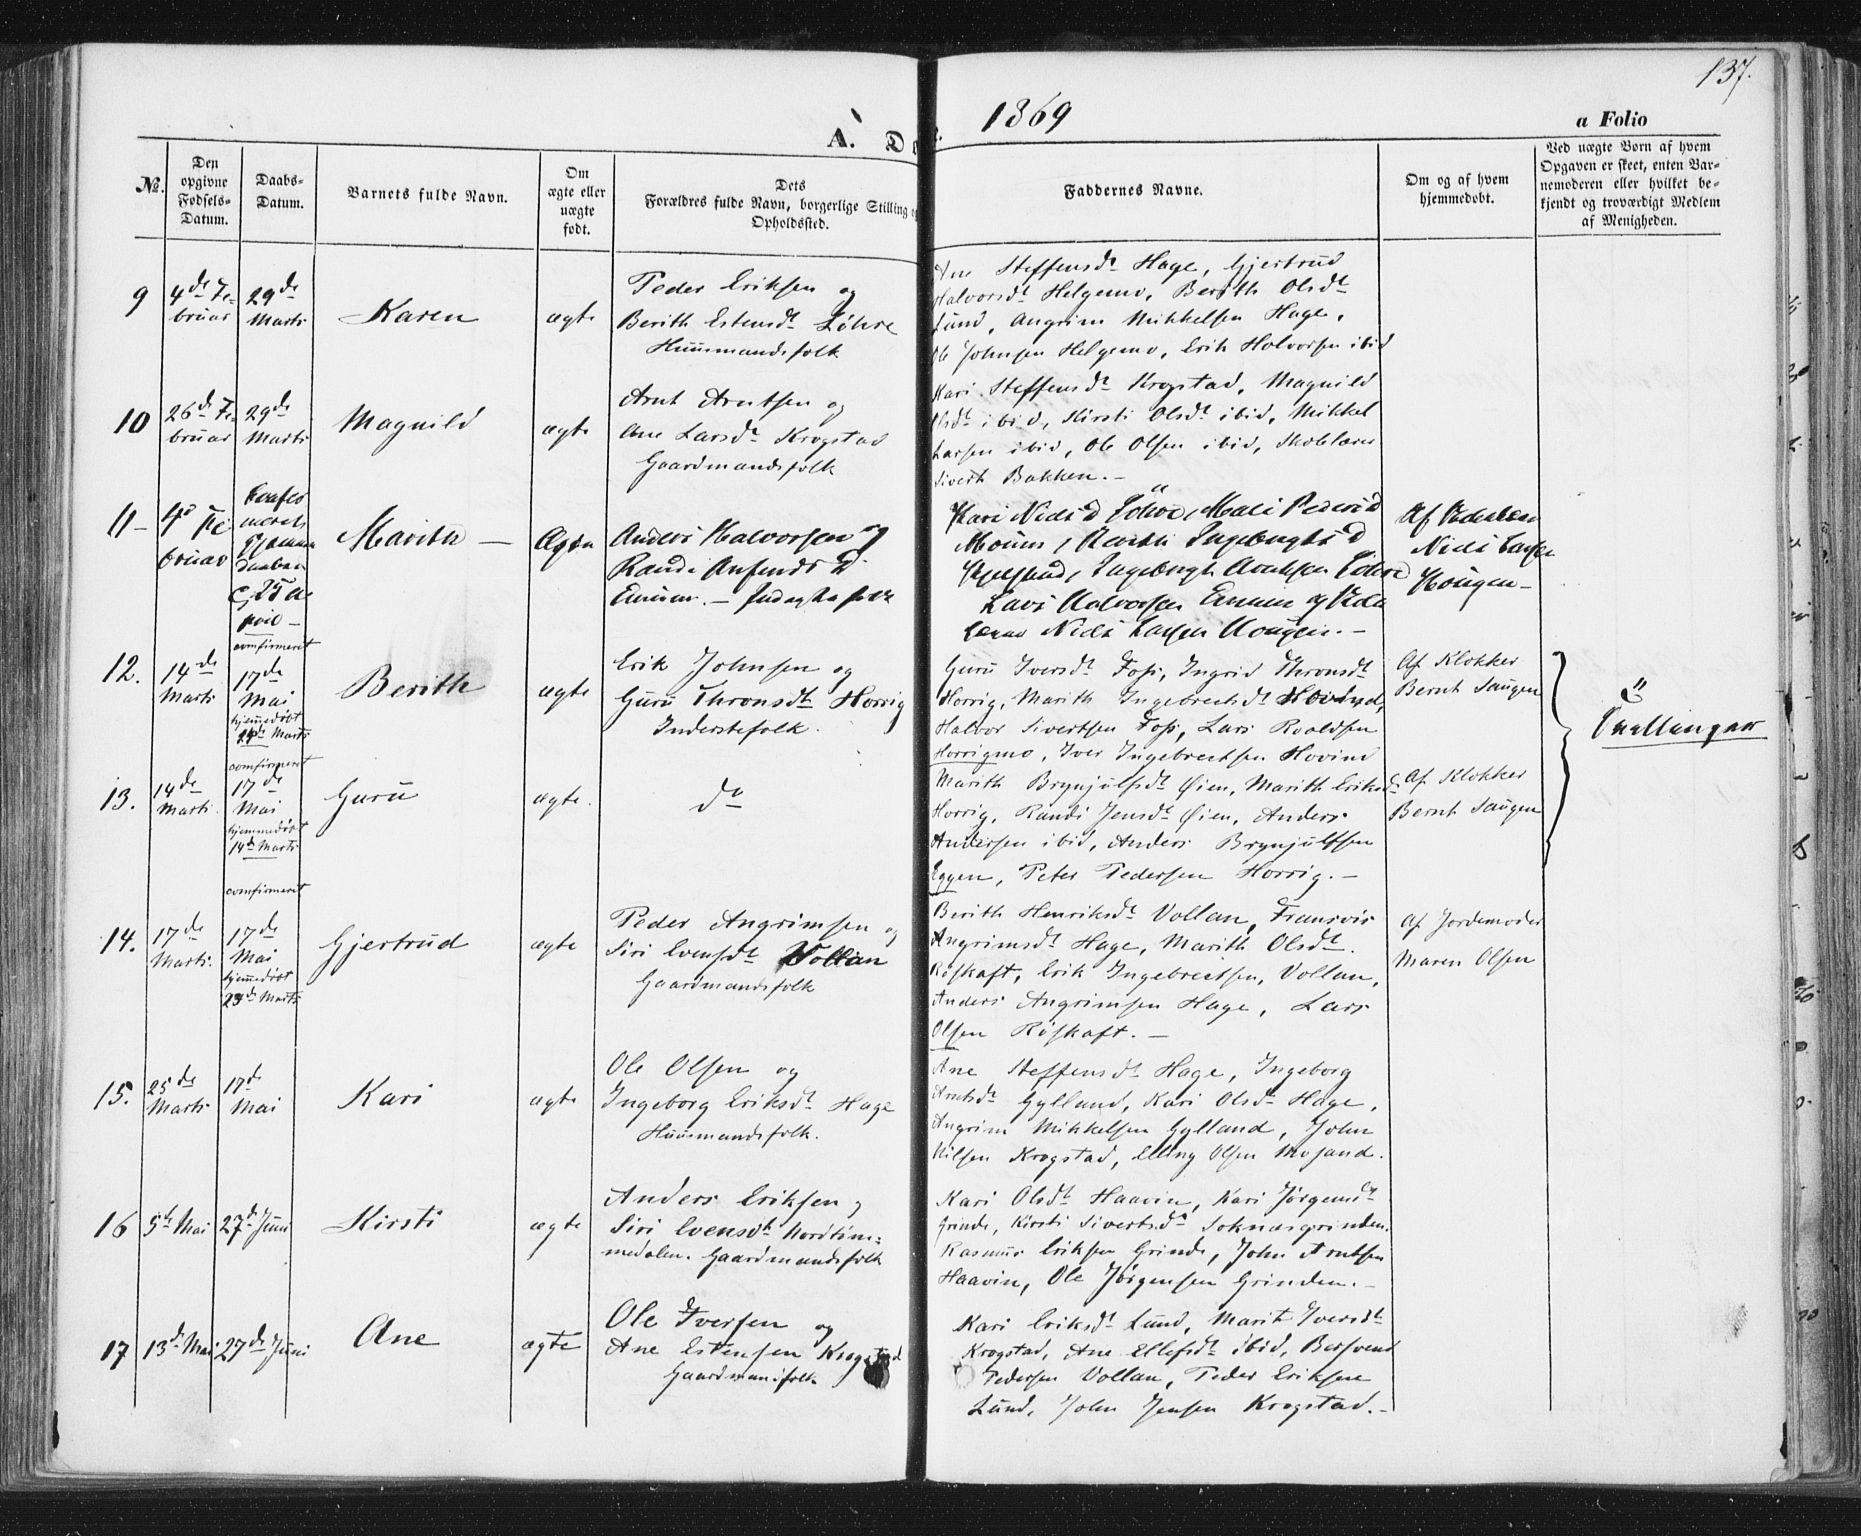 137.
1869
A. D
a Folio
No.
Den opgivne Fødsels-Datum.
Daabs-Datum.
Barnets fulde Navn.
Om ægte eller uægte født.
Dets Forældres fulde Navn, borgerlige Stilling og Opholdssted.
Faddernes Navne.
Om og af hvem hjemmedøbt.
Ved uægte Børn af hvem Opgaven er skeet, enten Barnemoderen eller hvilket bekjendt og troværdigt Medlem af Menigheden.
9
4de Februar
29de Marts
Karen
ægte
Peder Eriksen og
Berith Estensdt Løhre
Huusmandsfolk
Ane Steffensdt Hage, Gjertrud
Halvorsdt Helgemo, Berith Olsdt
Lund, Angrim Mikkelsen Hage,
Ole Johnsen Helgemo, Erik Halvorsen ibid
10
26de Februar
29de Marts
Magnild
ægte
Arnt Arntsen og
Ane Larsdt Krogstad
Gaardmandsfolk
Kari Steffensdt Krogstad, Magnild
Olsdt ibid, Kirsti Olsdt ibid, Mikkel
Larsen ibid, Ole Olsen ibid, Skolelærer
Sivert Bakken. -
11 -
Februar
Marith -
Anders Halvorsen og
Lars Halvorsen
Niels Larsen Hougen. -
Niels Larsen
Hougen -
12.
14de Marts
comfirmeret
17de Mai
hjemmedøbt
Marts
Berith
ægte
Erik Johnsen og
Guru Thronsdt Horrig
Inderstefolk.
Guru Iversdt Foss, Ingrid Thronsdt
Horrig, Marith Ingebrectsdt Hovind,
Halvor Sivertsen Foss, Lars Roaldsen
Horrigmo, Iver Ingebrectsen Hovind
Af Klokker
Bernt Saugen
Tvellinger
13.
14de Marts.
comfirmeret
17de Mai
hjemmedøbt
14de Marts
Guru
ægte.
do
Marith Brynjulfsdt Øien, Marith Eriksd
Horrig, Randi Jensdt Øien, Anders
Andersen ibid, Anders Brynjulfsen
Eggen, Peter Pedersen Horrig. -
Af Klokker
Bernt Saugen
14.
17de Marts.
comfirmeret
17de Mai
hjemmedøbt
23de Marts
Gjertrud
ægte
Peder Angrimsen og
Siri Evensdt Vollan
Gaardmandsfolk
Berith Henriksdt Vollan,
Angrimsdt Hage, Marith Olsdt.
Røskaft, Erik Ingebrectsen, Vollan,
Anders Angrimsen Hage, Lars
Olsen Røskaft. -
Af Jordemoder
Maren Olsen
15.
25de Marts
17de Mai
Kari
ægte
Ole Olsen og
Ingeborg Eriksdt Hage
Huusmandsfolk.
Ane Steffensdt Hage, Ingeborg
Arntsdt Gylland, Kari Olsdt Hage,
Angrim Mikkelsen Gylland, John
Nilsen Krogstad, Elling Olsen Mosand.
16
5te Mai
27de Juni
Kirsti
ægte
Anders Eriksen og
Siri Evensdt Nordtøm=
medalen. Gaardmandsfolk
Kari Olsdt Haavin, Kari Jørgensdt
Grinde, Kirsti Sivertsdt Soknæsgrinden.
Rasmus Eriksen Grinde, John Arntsen
Haavin, Ole Jørgensen Grinden. -
17
13de Mai
27de Juni
Ane
ægte
Ole Iversen og
Ane Estensen Krogstad
Gaardmandsfolk
Kari Eriksdt Lund, Marit Iversdt
Krogstad, Ane Ellefsdt ibid, Bersvend
Pedersen Vollan, Peder Eriksen
Lund, John Jensen Krogstad. -